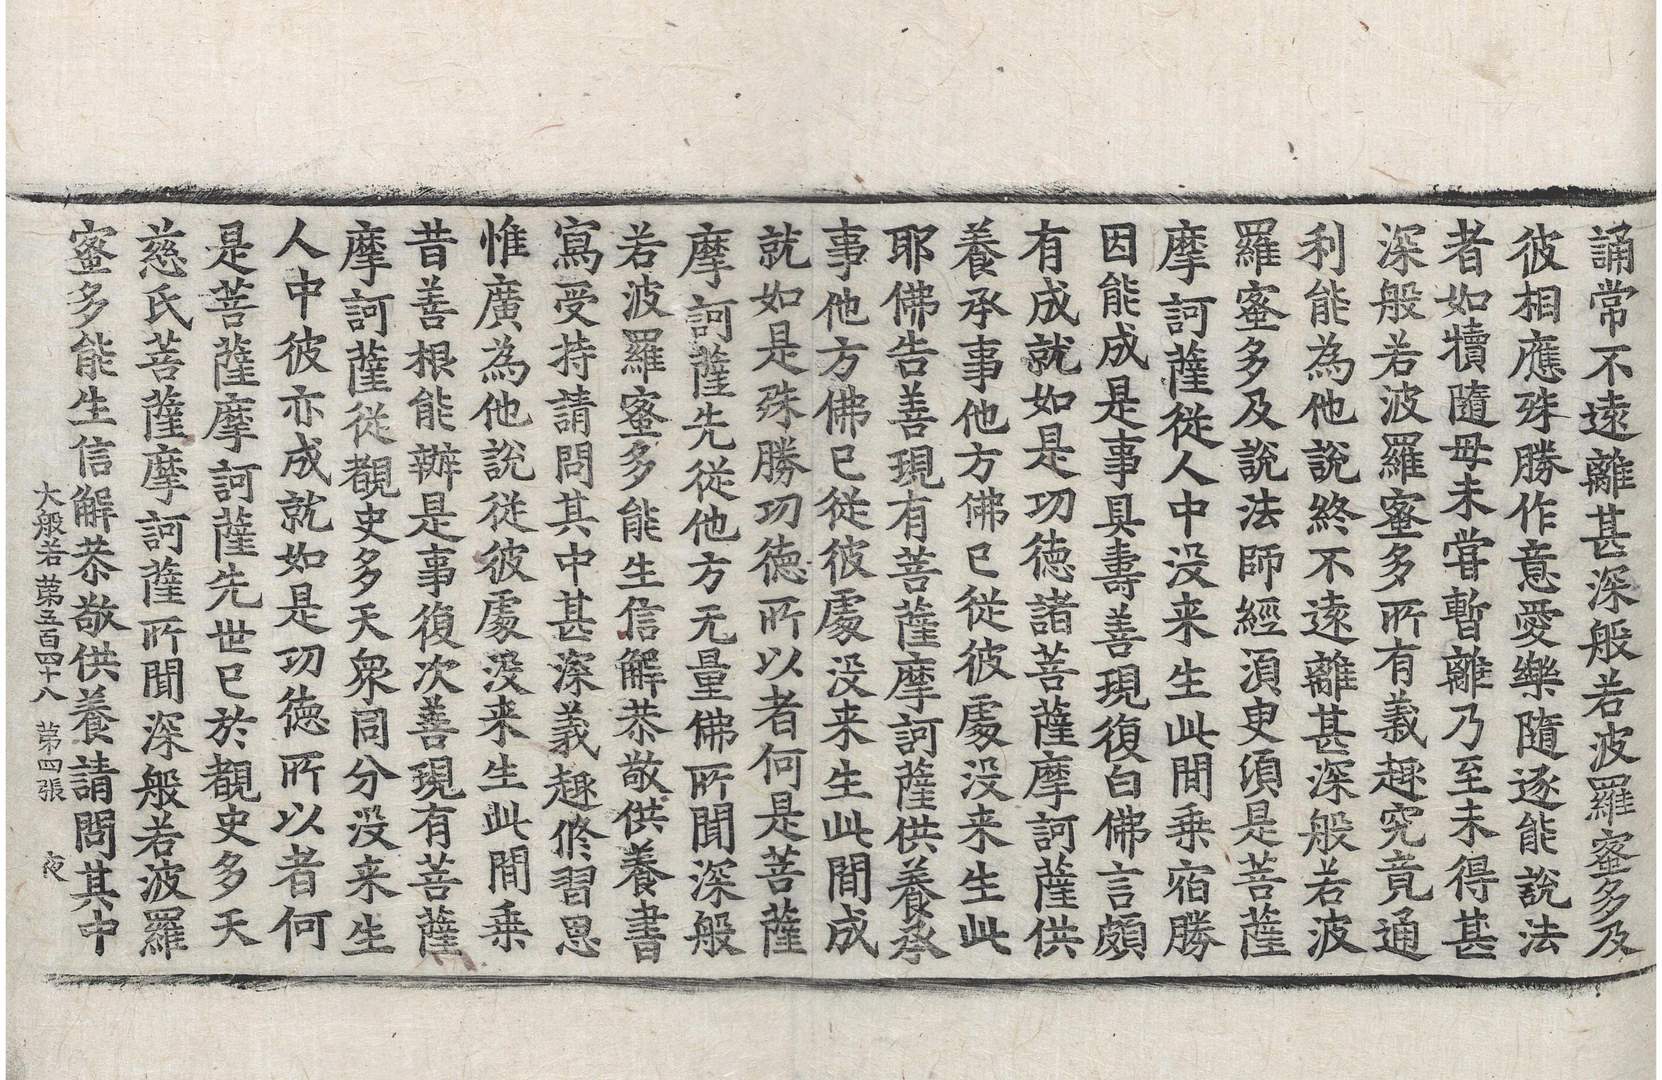 誦常不遠離甚深般若波羅蜜多及
彼相應殊勝作意愛樂隨逐能說法
者如犢隨母未甞暫離乃至未得甚
深般若波羅蜜多所有義趣究竟通
利能為他說終不遠離甚深般若波
羅蜜多及說法師經湏臾須是菩薩
摩訶薩從人中没来生此間乗宿勝
因能成是事具壽善現復白佛言頗
有成就如是功德諸菩薩摩訶薩供
養承事他方佛已從彼處没来生此
耶佛告善現有菩薩摩訶薩供養承
事他方佛已從彼處没来生此間成
就如是殊勝功德所以者何是菩薩
摩訶薩先從他方无量佛所聞深般
若波羅蜜多能生信解恭敬供養書
寫受持請問其中甚深義趣修習思
惟廣為他說從彼處没来生此間乗
昔善根能辦是事復次善現有菩薩
摩訶薩從覩史多天衆同分没来生
人中彼亦成就如是功德所以者何
是菩薩摩訶薩先世已於覩史多天
慈氏菩薩摩訶薩所聞深般若波羅
蜜多能生信解恭敬供養請問其中
大般若第五百四十八 第四張 夜